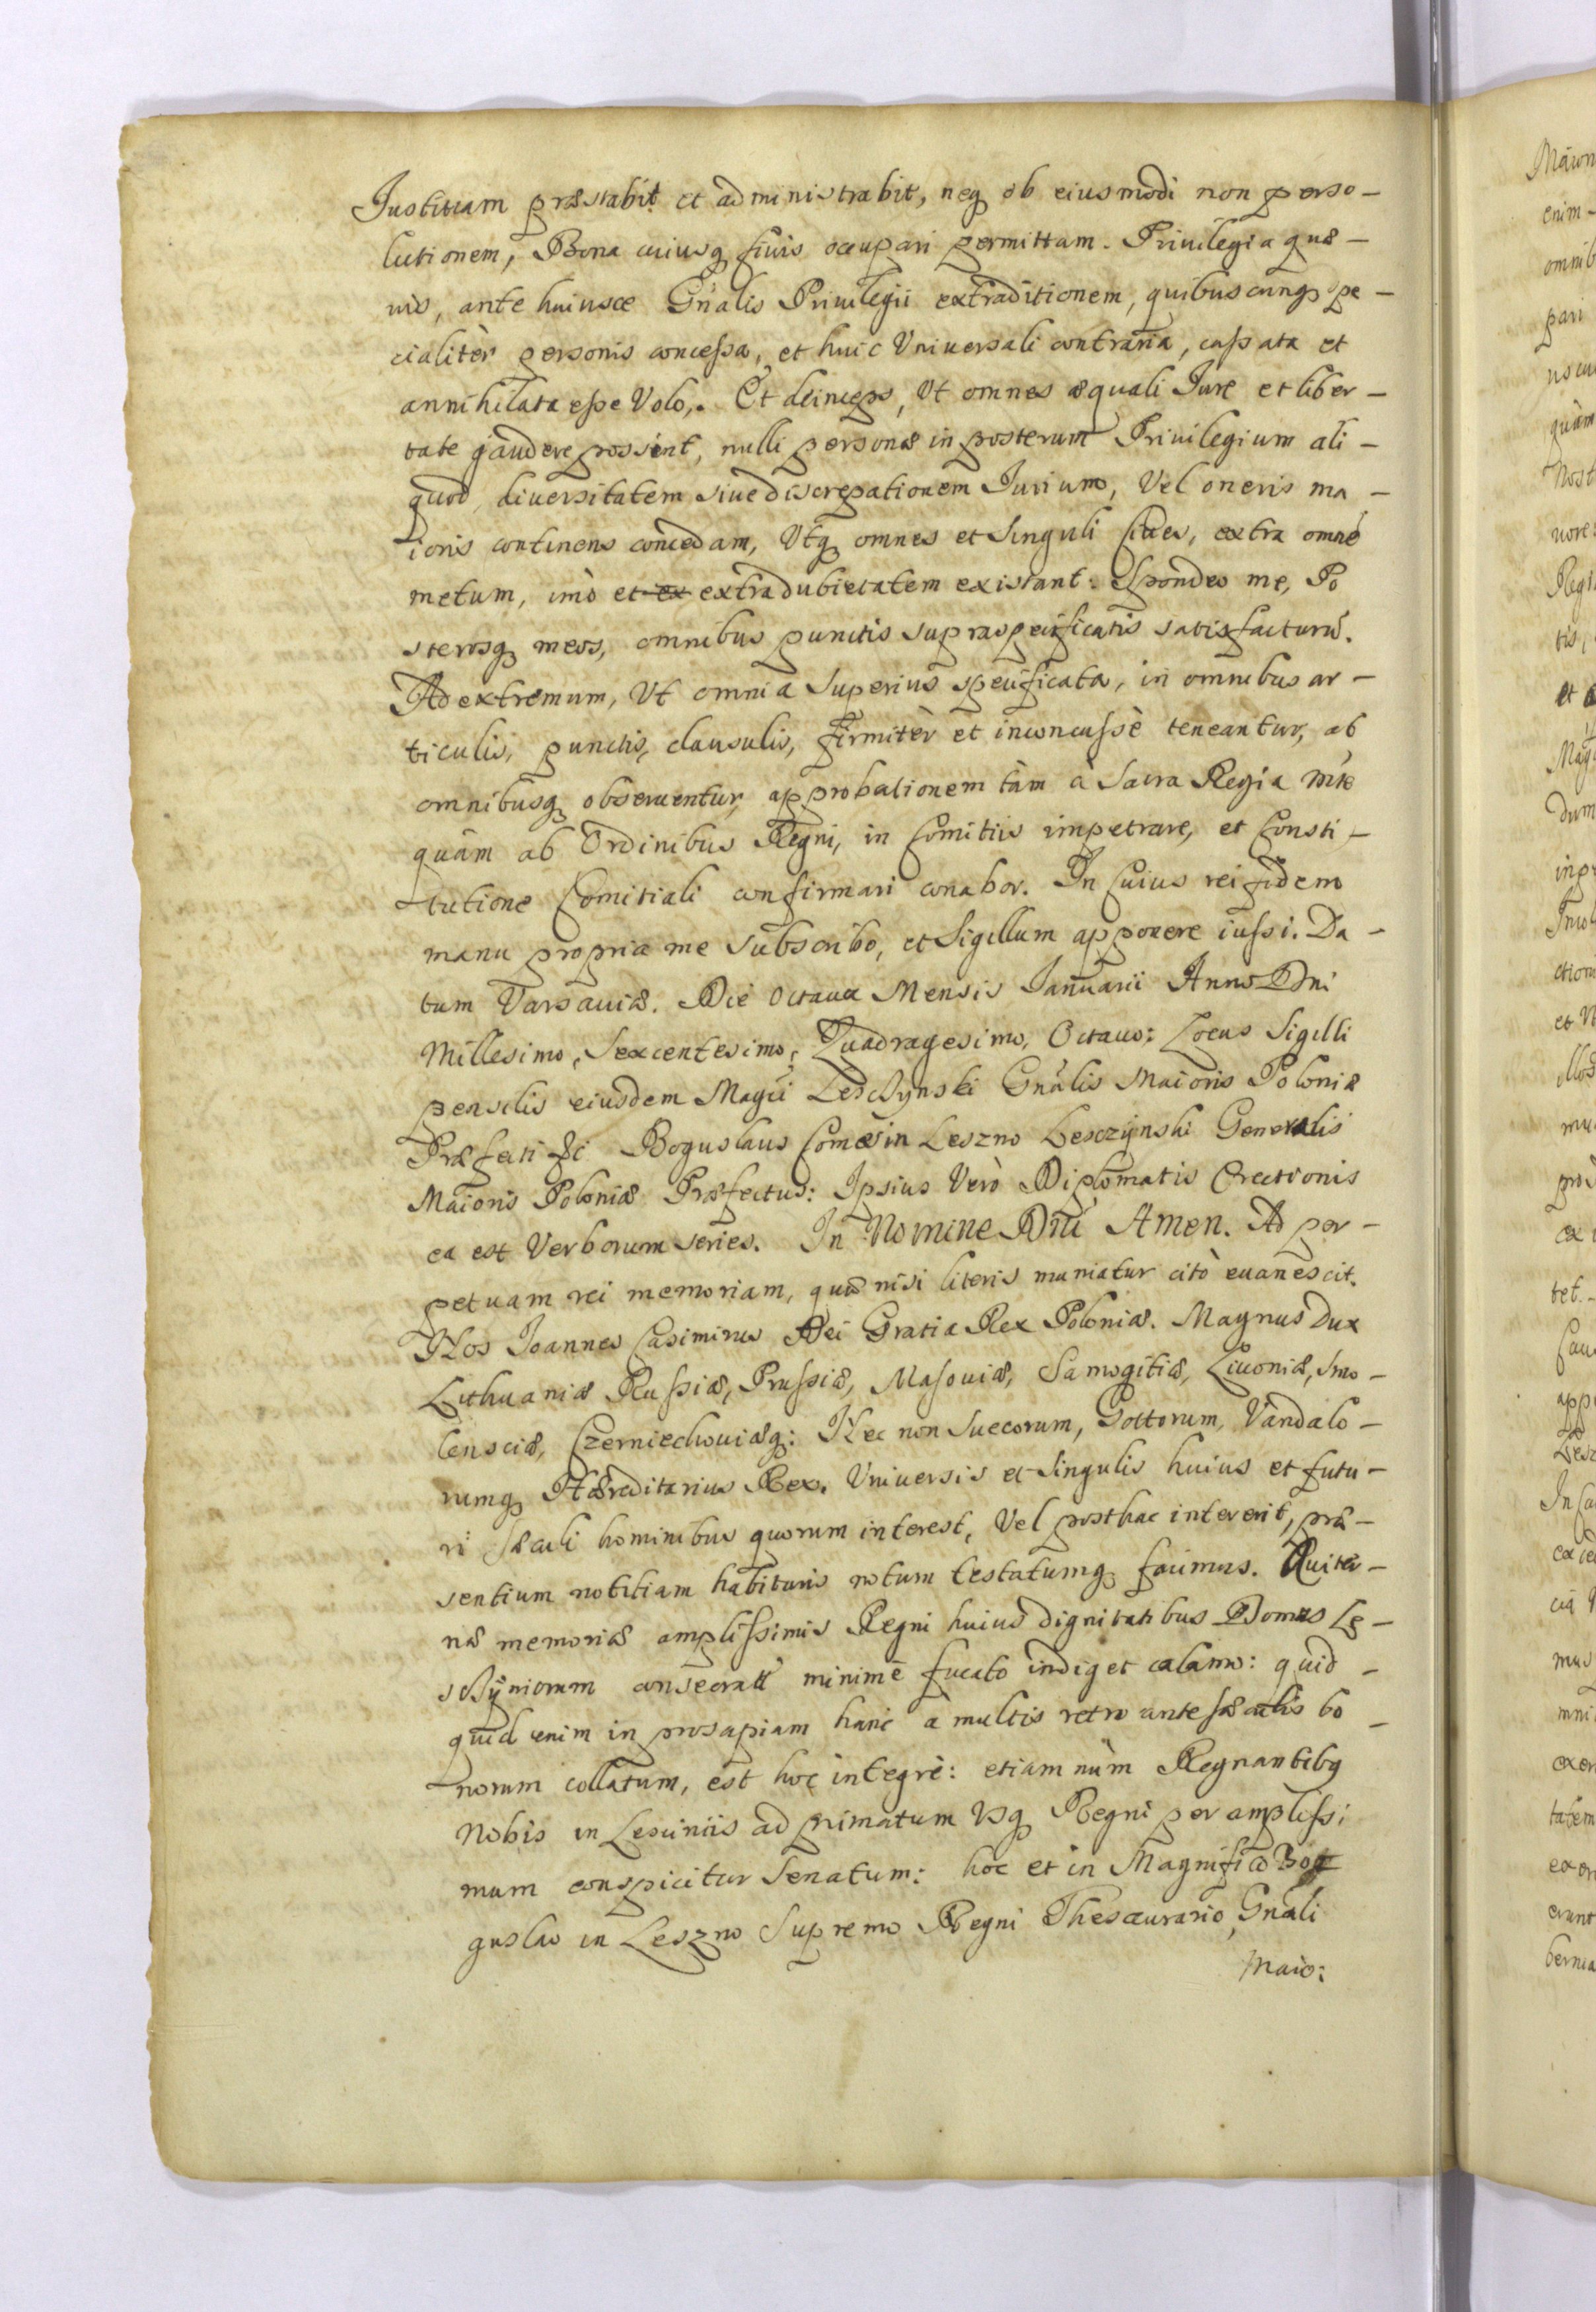 Justitiam præstabit et administrabit, neq₃ ob eiusmodi non perso-
lutionem, Bona cuiusq₃ Civis occupari permittam. Privilegia quæ-
vis, ante huiusce Gñalis Privilegii extraditionem, quibuscunq₃ spe-
cialitèr personis concessa, et huic Vniversali contraria, cassata et
annihilata esse Volo. Et deinceps, Vt omnes æquali Jure et liber-
tate gaudere possint, nulli personæ in posterum Privilegium ali-
quod, diversitatem sive discrepationem Jurium, Vel oneris ma-
ioris continens concedam, Vtq₃ omnes et Singuli Cives, extra omnē
metum, imò et ex extra dubietatem existant: Spondeo me, Po
sterosq₃ meos, omnibus punctis supraspecificatis satisfacturū.
Ad extremum, Vt omnia Superius specificata, in omnibus ar-
ticulis, punctis, clausulis, firmitèr et inconcussè teneantur, ab
omnibusq₃ observentur, approbationem tàm à Sacra Regia Mte
quàm ab Ordinibus Regni, in Comitiis impetrare, et Consti-
tutione Comitiali confirmari conabor. In Cuius rei fidem
manu propria me Subscribo, et Sigillum apponere iussi. Da-
tum Varsaviæ. Die Octava Mensis Januarii Anno Dni
Millesimo, Sexcentesimo, Quadragesimo, Octavo: Locus Sigilli
pensilis eiusdem Magci Leschynski Gnālis Maioris Poloniæ
Præfecti &c Boguslaus Comes in Leszno Lesczÿnski Generalis
Maioris Poloniæ Præfectus: Ipsius Verò Diplomatis Erectionis
ea est Verborum series. In Nomine Dni Amen. Ad per-
petuam rei memoriam, quæ nisi literis muniatur citò evanescit.
Nos Joannes Casimirus Dei Gratia Rex Poloniæ. Magnus Dux
Lithuaniæ Russiæ, Prussiæ, Masoviæ, Samogitiæ, Livoniæ, Smo-
lensciæ, Czerniechoviæq₃: Nec non Suecorum, Gottorum, Vandalo-
rumq₃ Hæreditarius Rex. Vniversis et Singulis huius et futu-
ri sæculi hominibus quorum interest, Vel posthac intererit, præ-
sentium notitiam habituris notum testatumq₃ facimus.
næ memoriæ amplissimis Regni huius dignitatibus Domus Le-
minimè fucato indiget calamo: quid-
quid enim in prosapiam hanc à multis retro ante sæculis bo-
norum collatum, est hoc integrè: etiam nùm Regnantibq
Nobis in Lesciniis ad primatum Vsq₃ Regni per amplissi
mum conspicitur Senatum: hoc et in Magnifico Bog
guslao in Leszno Supremo Regni Thesaurario, Gnāli
Maio: